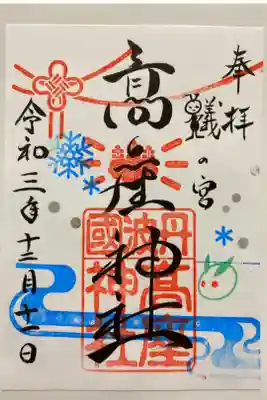 奉拝
蟻の宮
高座神社
丹波國
高座神社
令和三年十二月十一日